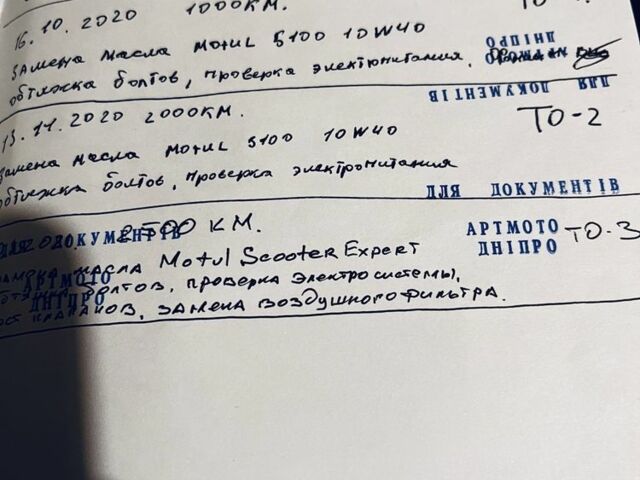 16.10.2020 1000КМ. ТО-
Замена масла Motul 5100 10W40
обтяжка болтов, проверка электропитания.
АРТМОТО ДНІПРО
ДЛЯ ДОКУМЕНТІВ
13.11.2020 2000КМ. ТО-2
Замена масла Motul 5100 10W40
обтяжка болтов, проверка электропитания
ДЛЯ ДОКУМЕНТІВ
АРТМОТО
ДНІПРО
КМ. ТО-3
ДЛЯ ДОКУМЕНТІВ
Замена масла Motul Scooter Expert
АРТМОТО
ДНІПРО
болтов, проверка электросистемы,
клапанов, замена воздушного фильтра.